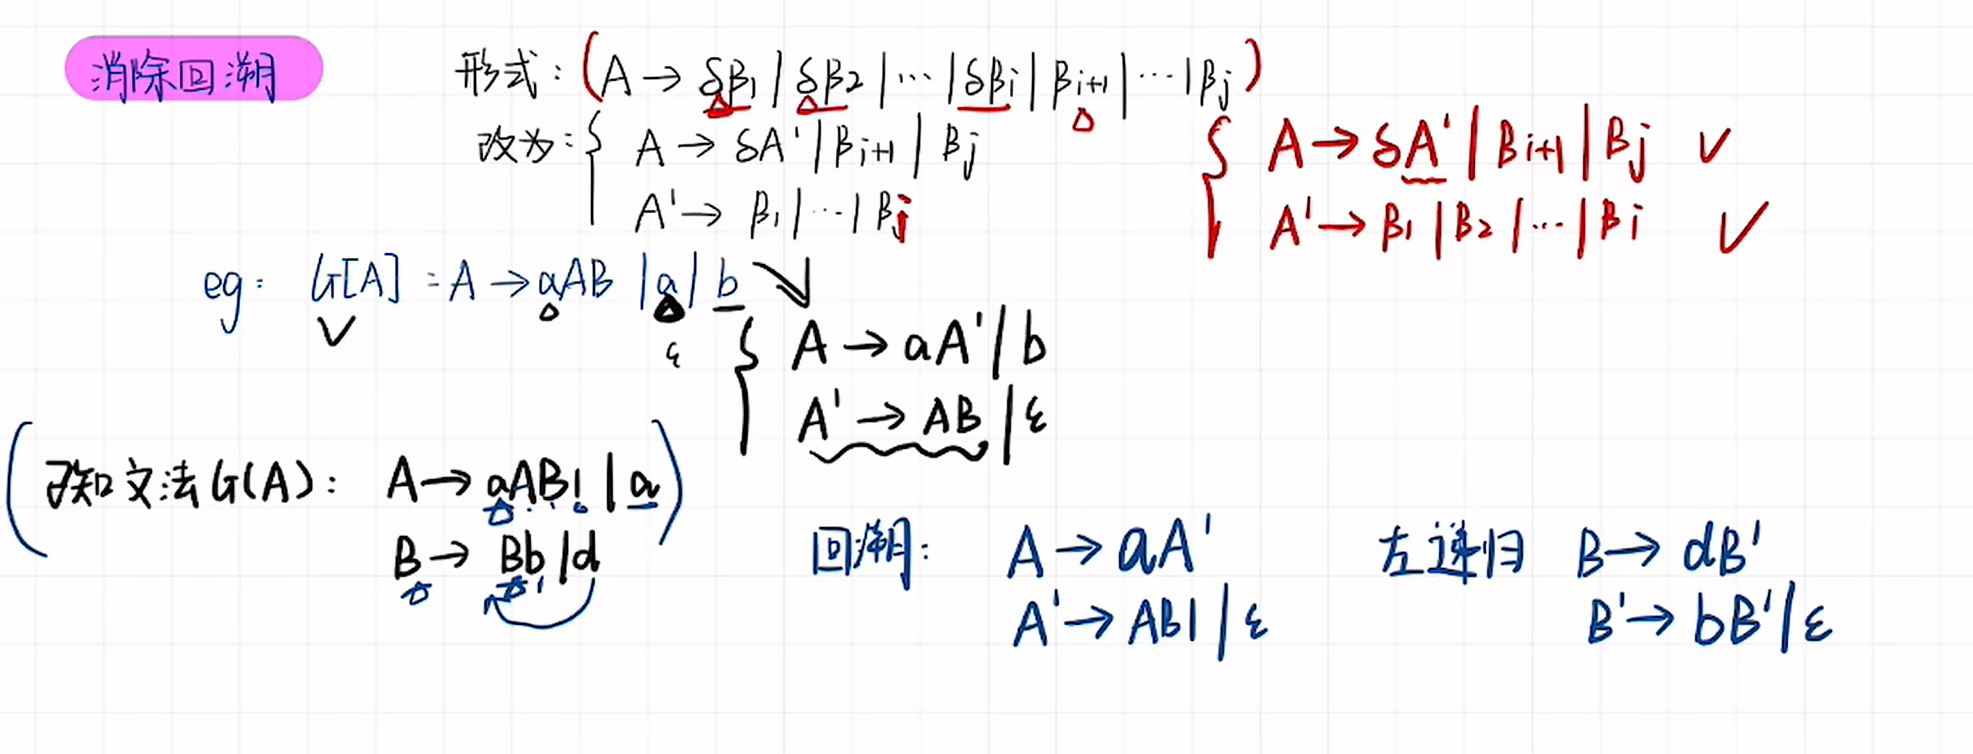 消除回溯
形式：(A → δβ1 | δβ2 | ··· | δβi | βi+1 | ··· | βj)
改为：{ A → δA' | βi+1 | βj
A' → β1 | ··· | βj
{ A → δA' | βi+1 | βj ✓
A' → β1 | β2 | ··· | βi ✓
eg： G[A] ：A → aAB | a | b
ε
{ A → aA' | b
A' → AB | ε
(已知文法G(A)： A → aAB1 | a)
B → Bb | d
回溯： A → aA'
A' → AB1 | ε
左递归 B → dB'
B' → bB' | ε